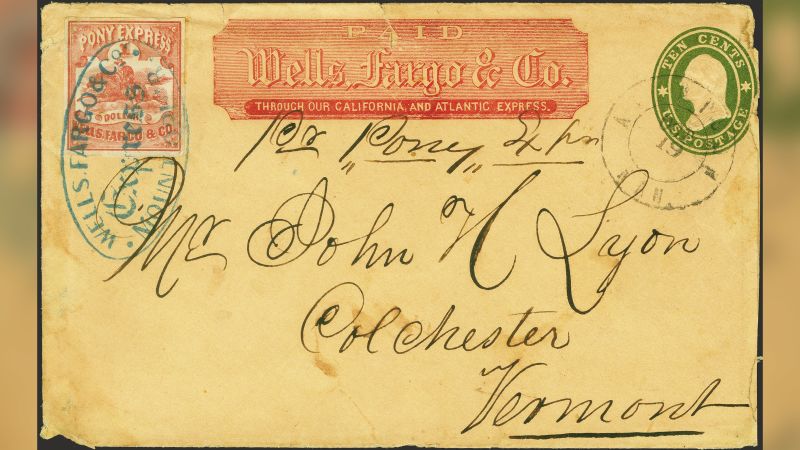 PONY EXPRESS
DOLLAR
WELLS. FARGO & CO.
WELLS. FARGO & Co.
Express
PAID
Wells, Fargo & Co.
THROUGH OUR CALIFORNIA, AND ATLANTIC EXPRESS.
TEN CENTS
U.S. POSTAGE
19
Pr "Pony" Exp
Mr John H Lyon
Colchester
Vermont